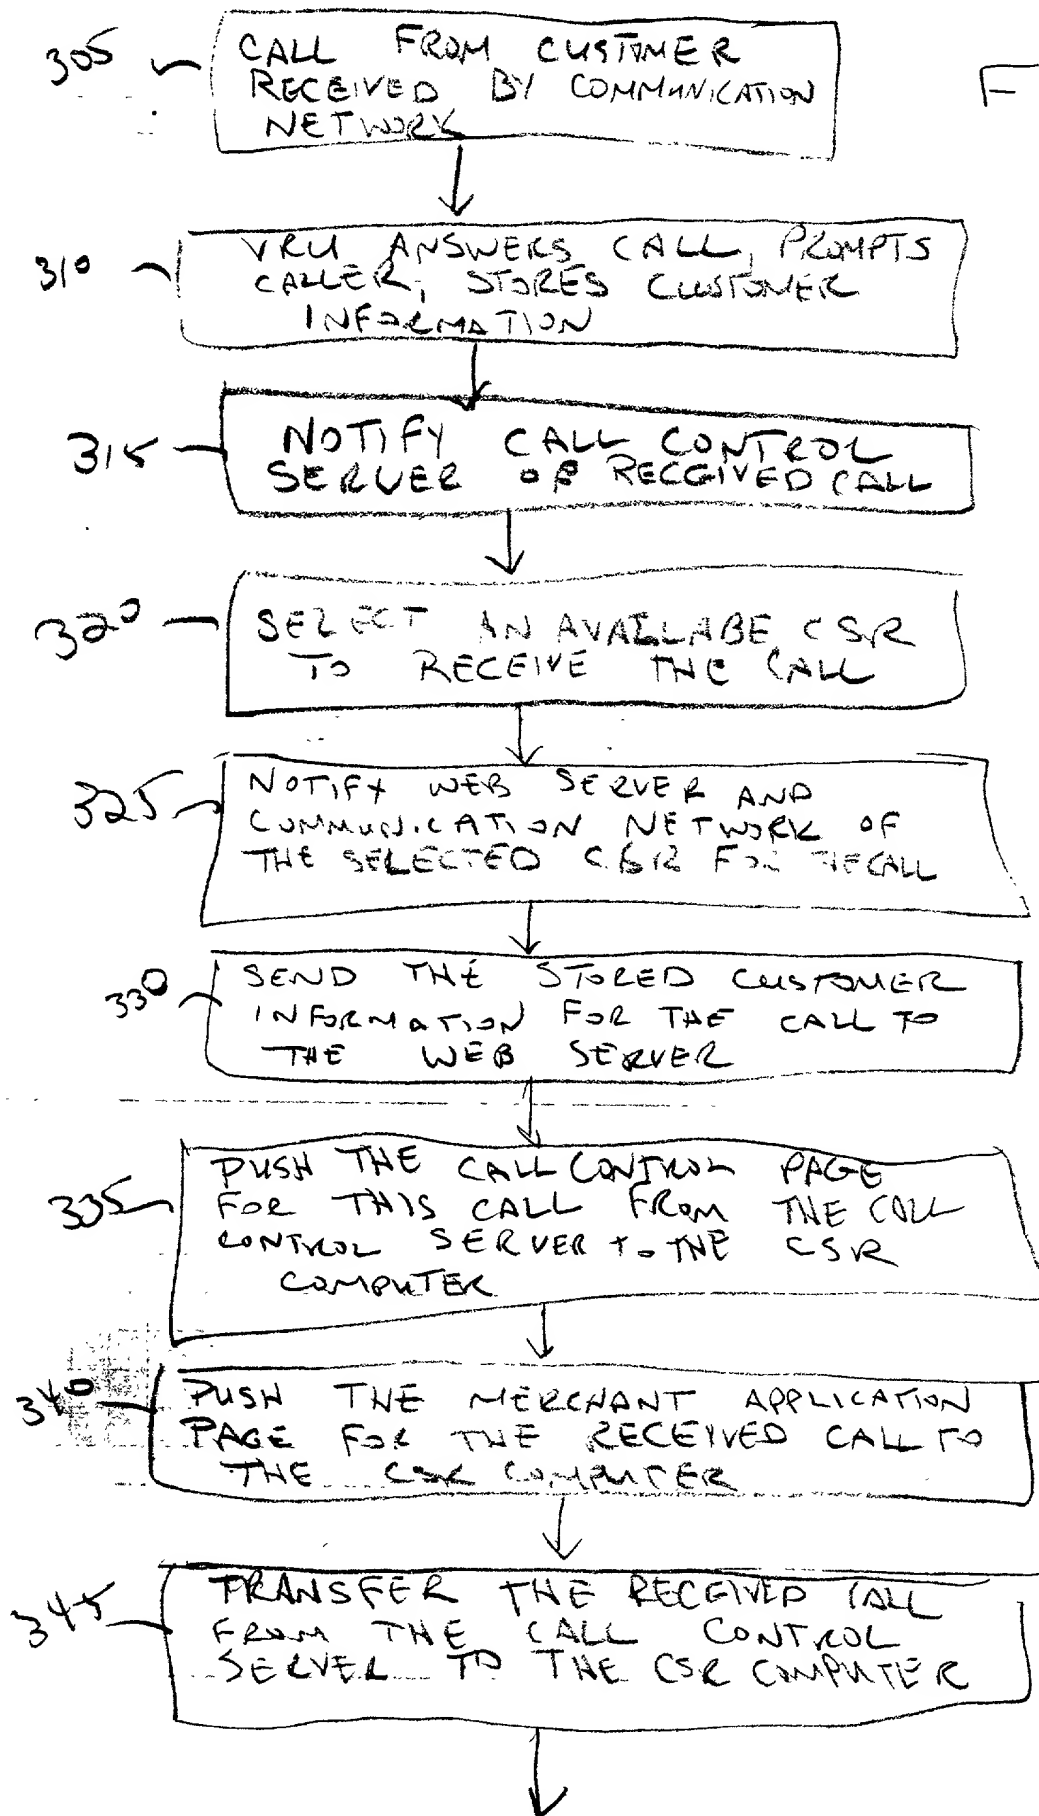 305
CALL FROM CUSTOMER
RECEIVED BY COMMUNICATION
NETWORK
F
310
VRU ANSWERS CALL, PROMPTS
CALLER, STORES CUSTOMER
INFORMATION
315
NOTIFY CALL CONTROL
SERVER OF RECEIVED CALL
320
SELECT AN AVAILABE CSR
TO RECEIVE THE CALL
325
NOTIFY WEB SERVER AND
COMMUNICATION NETWORK OF
THE SELECTED CSR FOR THE CALL
330
SEND THE STORED CUSTOMER
INFORMATION FOR THE CALL TO
THE WEB SERVER
335
PUSH THE CALL CONTROL PAGE
FOR THIS CALL FROM THE CALL
CONTROL SERVER TO THE CSR
COMPUTER
340
PUSH THE MERCHANT APPLICATION
PAGE FOR THE RECEIVED CALL TO
THE CSR COMPUTER
345
TRANSFER THE RECEIVED CALL
FROM THE CALL CONTROL
SERVER TO THE CSR COMPUTER